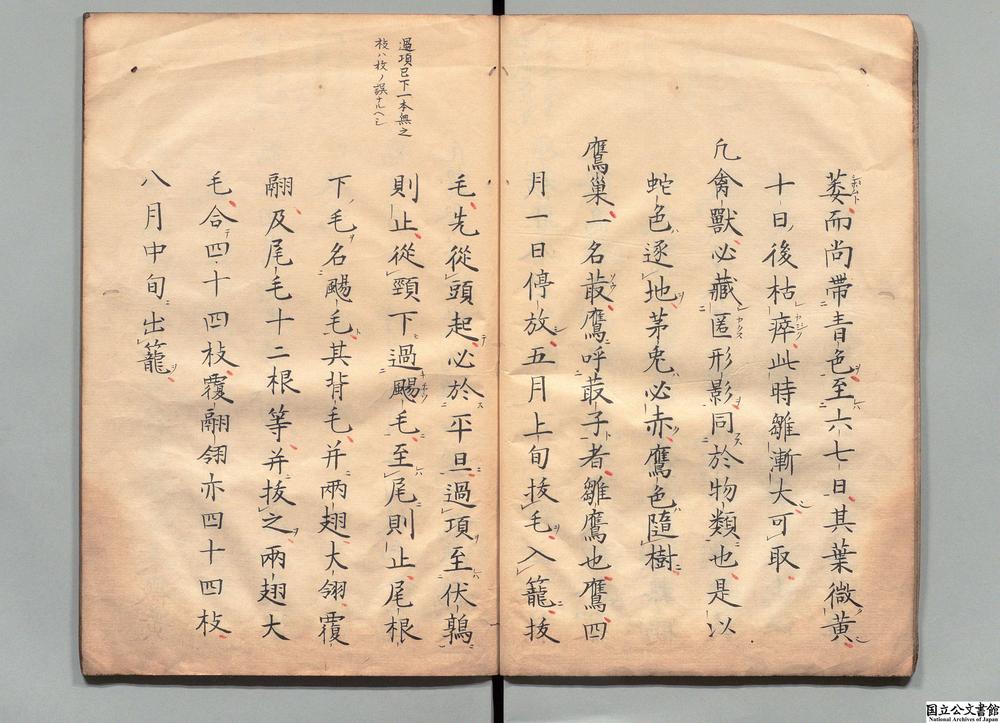 萎而尚帶青色至六七日其葉微黃
十日後枯瘁此時雛漸大可取
凡禽獸必藏匿形影同於物類也是以
蛇色逐地茅兎必赤鷹色隨樹
鷹巢一名菆鷹呼菆子者雛鷹也鷹四
月一日停放五月上旬拔毛入籠拔
毛先從頭起必於平旦過項至伏鶉
則止從頸下過颺毛至尾則止尾根
下毛名颺毛其背毛并兩翅大翎覆
翮及尾毛十二根等并拔之兩翅大
毛合四十四枝覆翮翎亦四十四枝
八月中旬出籠
過項已下一本無之
枝ハ枚ノ誤ナルヘシ
国立公文書館
National Archives of Japan